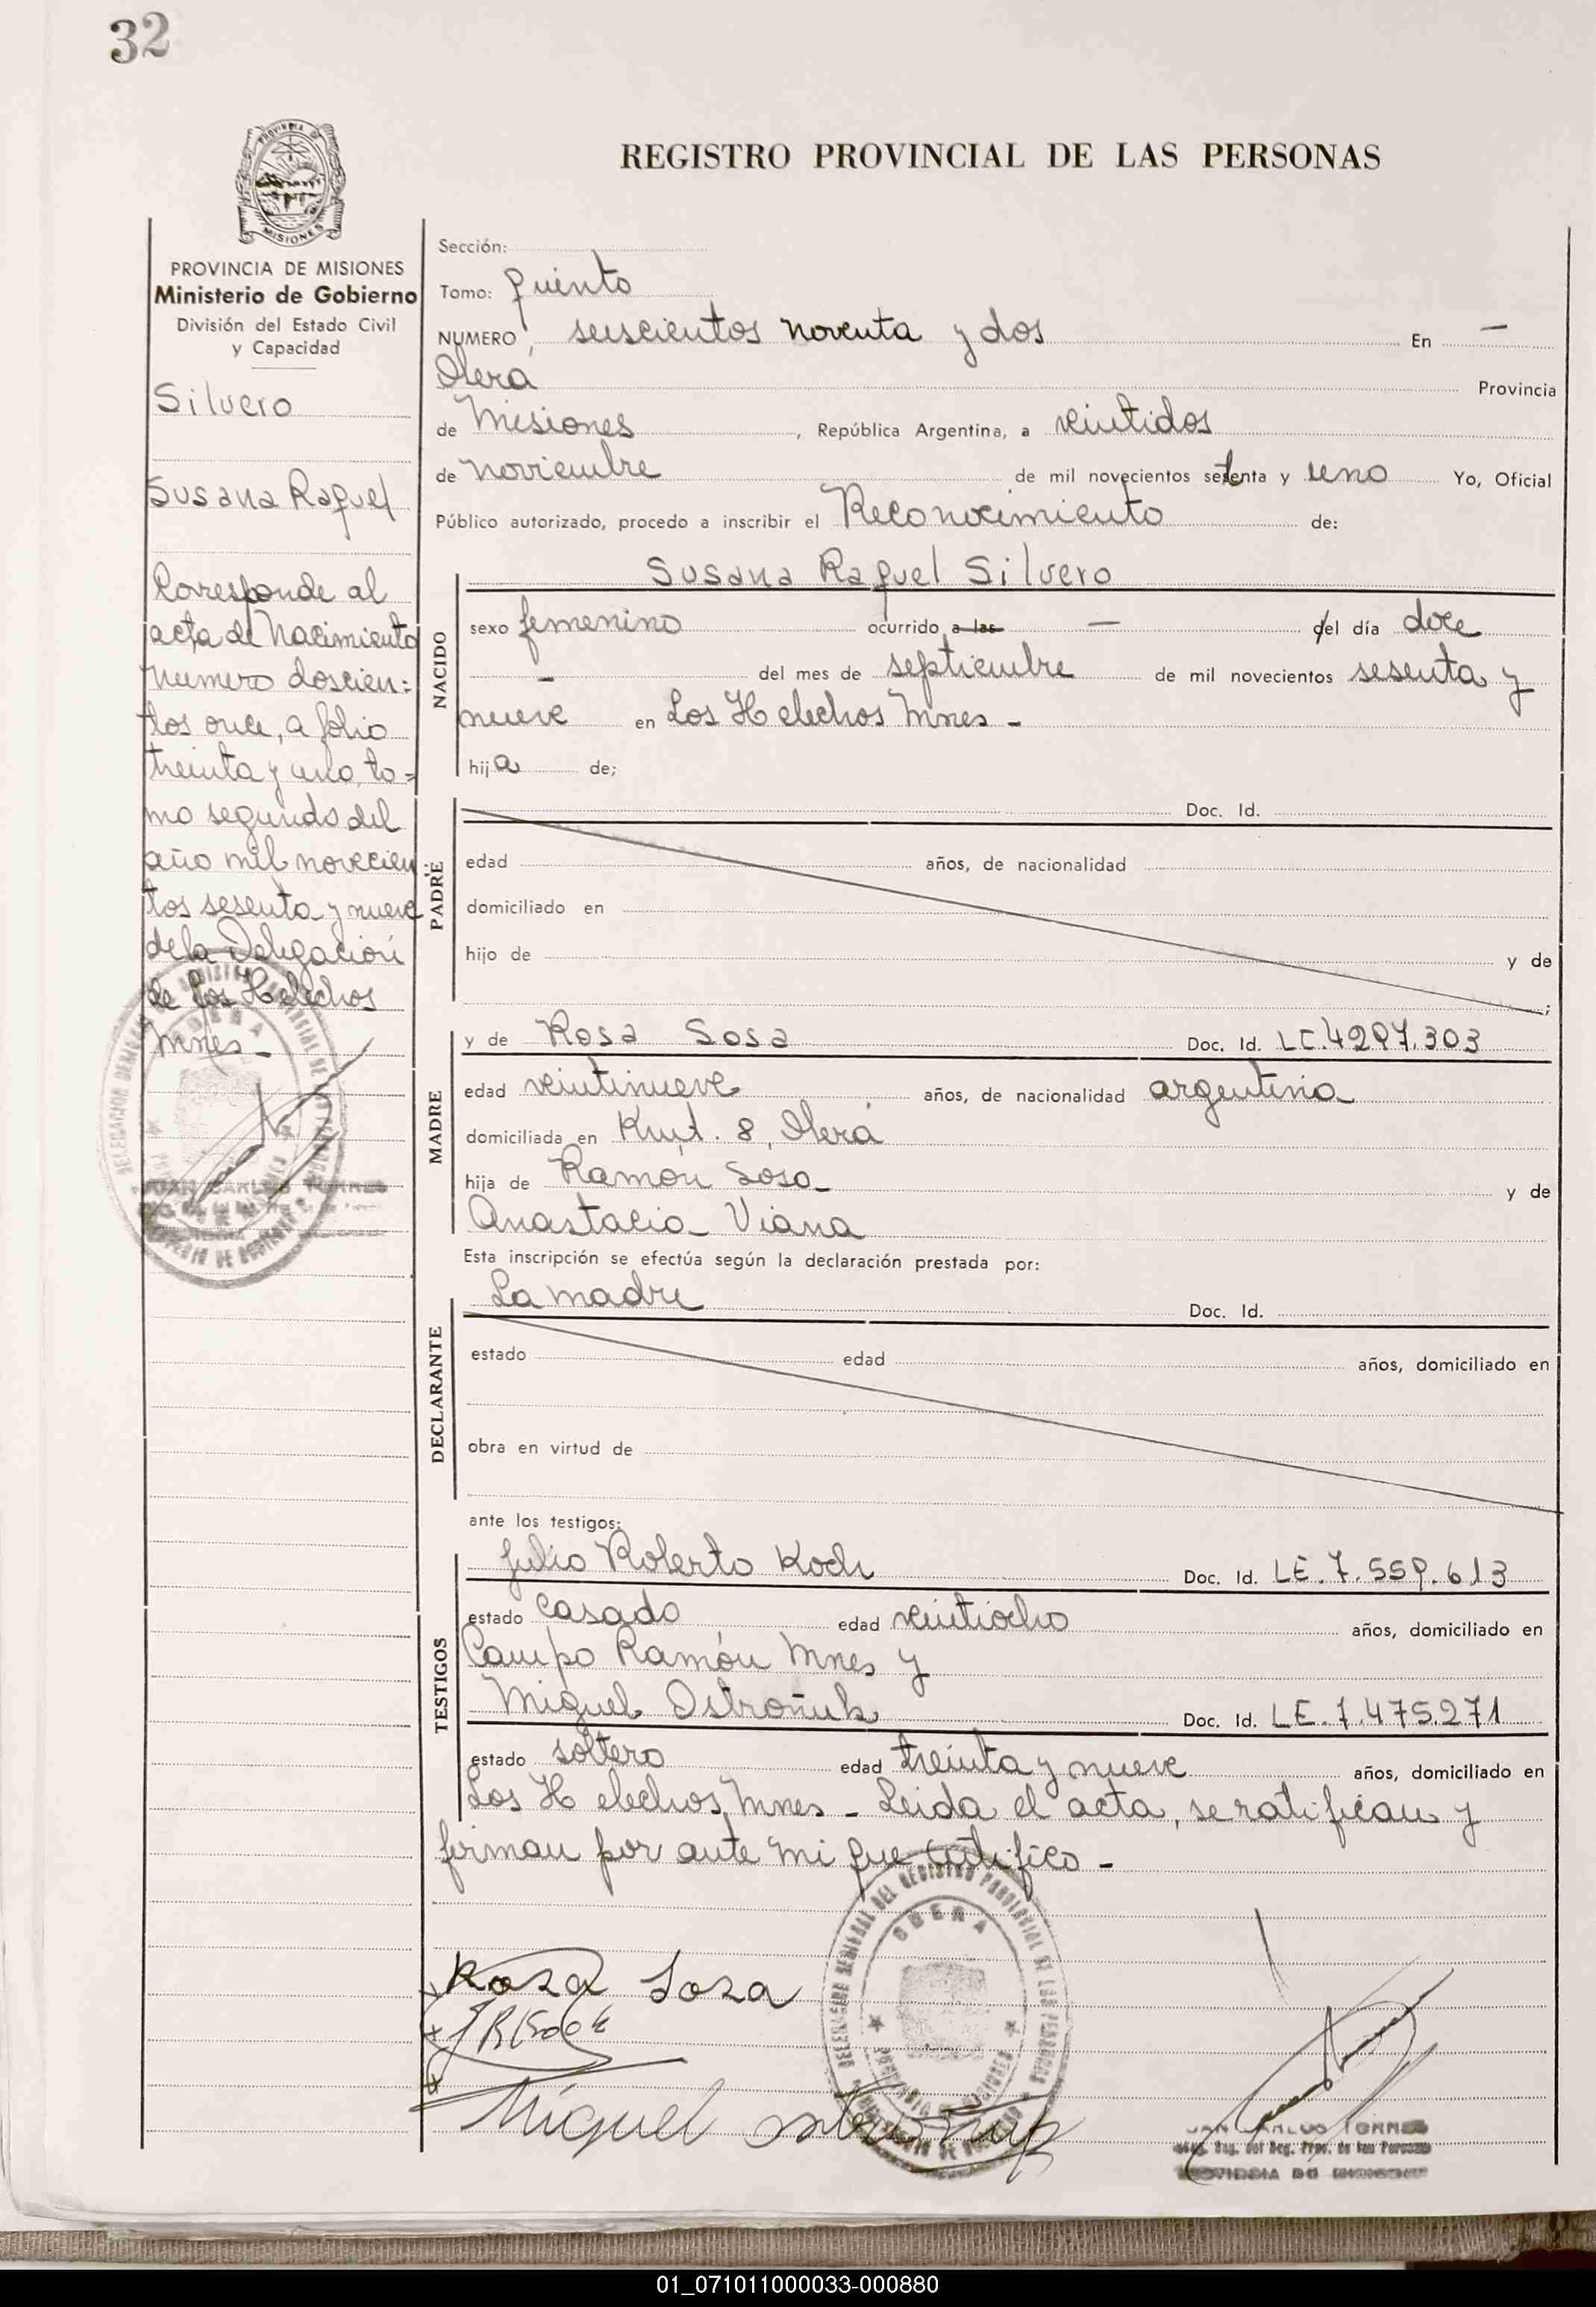 32
REGISTRO PROVINCIAL DE LAS PERSONAS
PROVINCIA DE MISIONES
Ministerio de Gobierno
División del Estado Civil
y Capacidad
Silvero
Susana Raquel
Corresponde al
acta de Nacimiento
numero doscien=
tos once, a folio
treinta y uno, to=
mo segundo del
año mil novecien
tos sesenta y nueve
de la Delegación
de Los Helechos
Mnes -
Sección:
Tomo: quinto
NUMERO seiscientos noventa y dos En —
Oberá Provincia
de Misiones, República Argentina, a veintidos
de noviembre de mil novecientos setenta y uno Yo, Oficial
Público autorizado, procedo a inscribir el Reconocimiento de:
NACIDO
Susana Raquel Silvero
sexo femenino ocurrido a las — del día doce
— del mes de septiembre de mil novecientos sesenta y
nueve en Los Helechos Mnes -
hija de;
PADRE
Doc. Id.
edad años, de nacionalidad
domiciliado en
hijo de y de
;
MADRE
y de Rosa Sosa Doc. Id. LC.4297.303
edad veintinueve años, de nacionalidad argentina
domiciliada en Kmt. 8, Oberá
hija de Ramón Sosa y de
Anastacia Viana
Esta inscripción se efectúa según la declaración prestada por:
DECLARANTE
La madre Doc. Id.
estado edad años, domiciliado en
obra en virtud de
ante los testigos:
TESTIGOS
Julio Roberto Koch Doc. Id. LE.7.559.613
estado casado edad veintiocho años, domiciliado en
Campo Ramón Mnes y
Miguel Ostroñuk Doc. Id. LE.7.475.271
estado soltero edad treinta y nueve años, domiciliado en
Los Helechos, Mnes - Leida el acta, se ratifican y
firman por ante mi que certifico -
OBERA
Rosa Sosa
JRKoch
Miguel
JUAN CARLOS TORRES
01_071011000033-000880